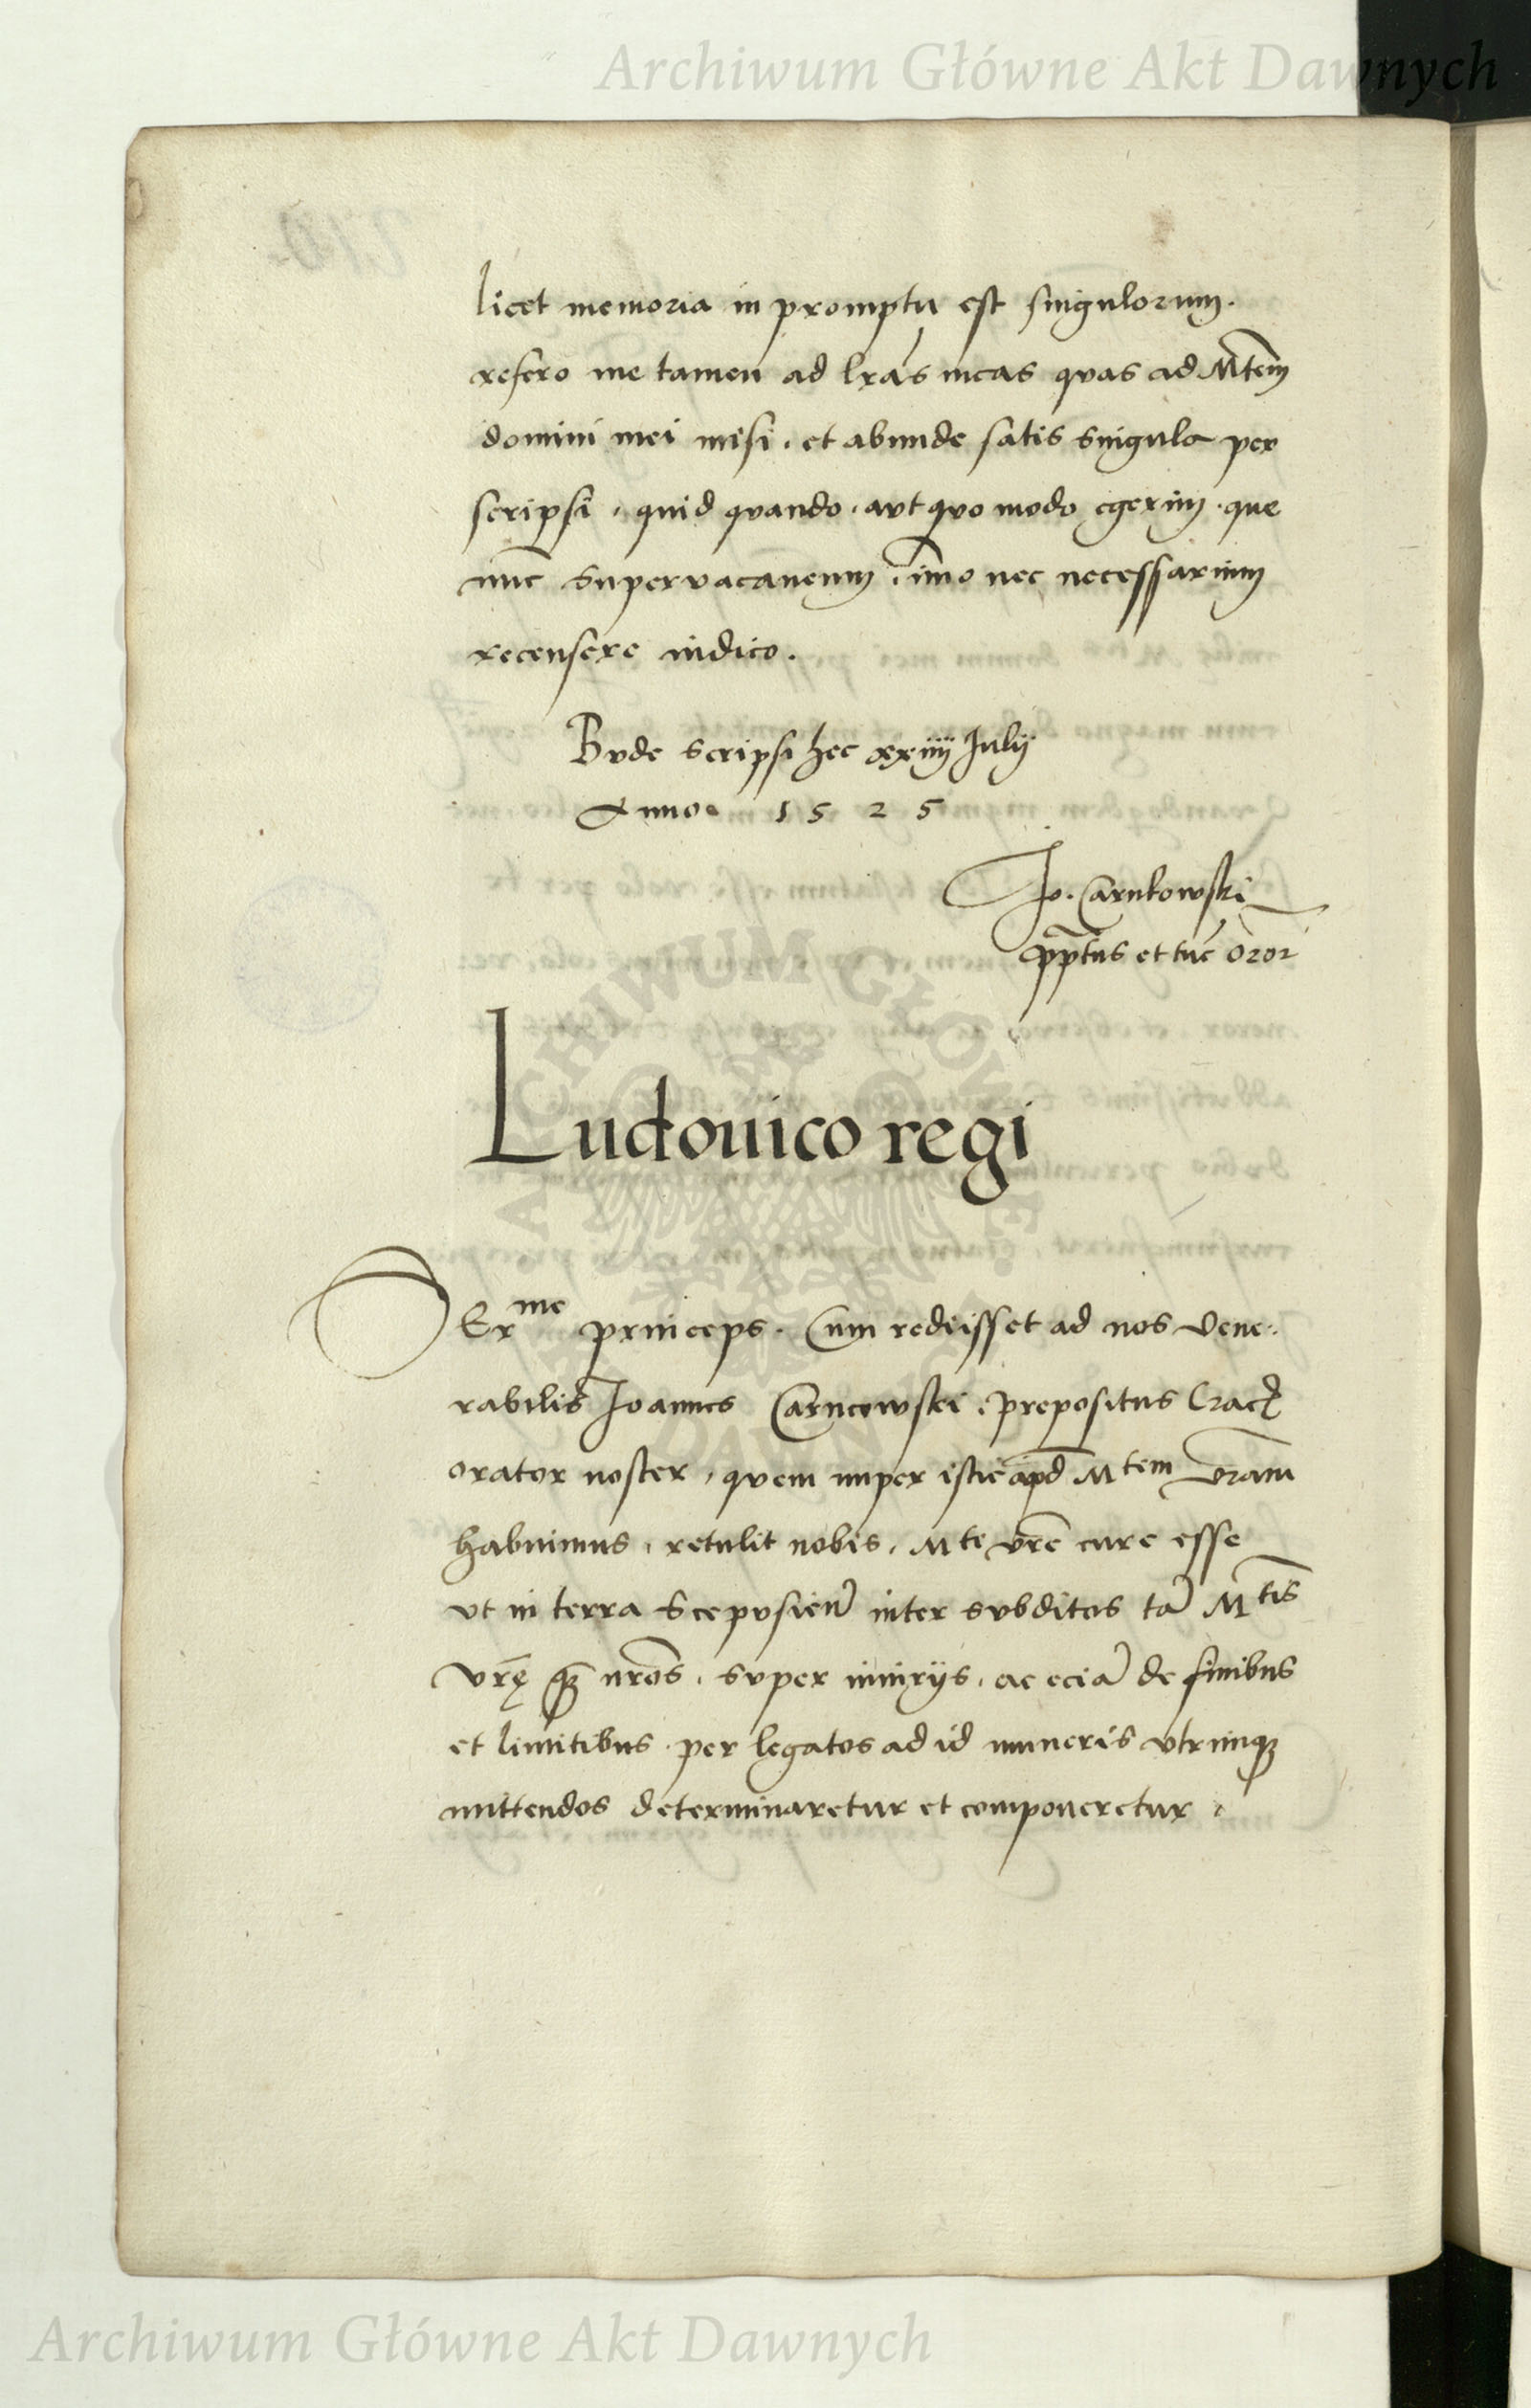 Archiwum Główne Akt Dawnych
licet memoria in promptu est singulorum.
refero me tamen ad lras meas quas ad Mtem
domini mei misi. et abunde satis singula per
scripsi, quid quando, aut quo modo egerim. que
nunc supervacaneum, imo nec necessarium
recensere iudico.
Bude scripsi hec xxiiij Julij
Anno 1525
Jo. Carnkowski
pptus et tuc oror
Ludouico regi
SErme princeps. Cum rediisset ad nos vene-
rabilis Joannes Carncowski, prepositus Crac
orator noster, quem nuper istic apd Mtem vram
habuimus, retulit nobis, Mti vre cure esse
vt in terra Scepusien inter subditos ta Mtis
vrę q nros, super iniurijs, ac ecia de finibus
et limitibus per legatos ad id muneris vtrinq
mittendos determinaretur et componeretur,
ARCHIWUM GŁÓWNE AKT DAWNYCH
Archiwum Główne Akt Dawnych